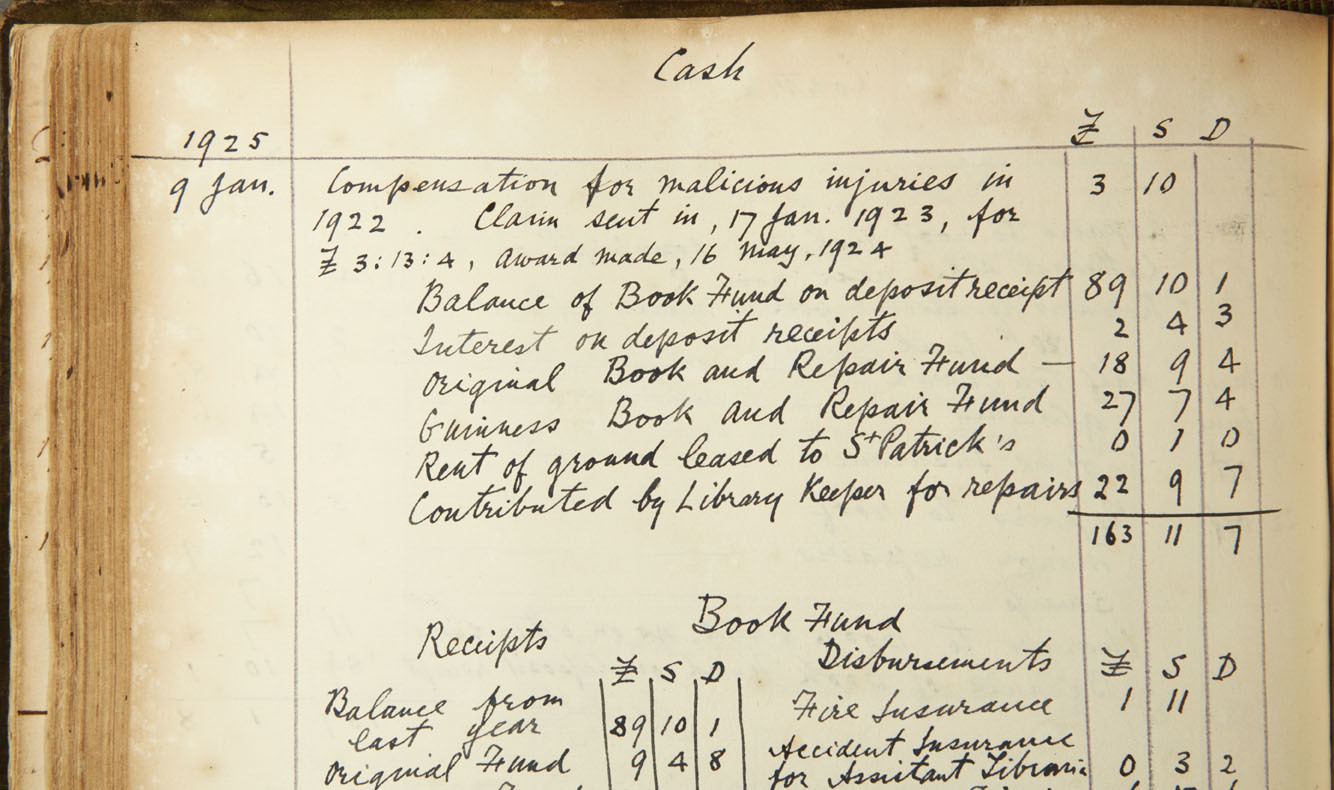 Cash
£ S D
1925
9 Jan. Compensation for malicious injuries in 3 10
1922. Claim sent in, 17 Jan. 1923, for
£ 3:13:4, award made, 16 May, 1924
Balance of Book Fund on deposit receipt 89 10 1
Interest on deposit receipts 2 4 3
Original Book and Repair Fund — 18 9 4
Guinness Book and Repair Fund 27 7 4
Rent of ground leased to St Patrick's 0 1 0
Contributed by Library Keeper for repairs 22 9 7
163 11 7
Book Fund
Receipts Disbursements
£ S D £ S D
Balance from Fire Insurance 1 11
last year 89 10 1 Accident Insurance
Original Fund 9 4 8 for Assistant Librarian 0 3 2